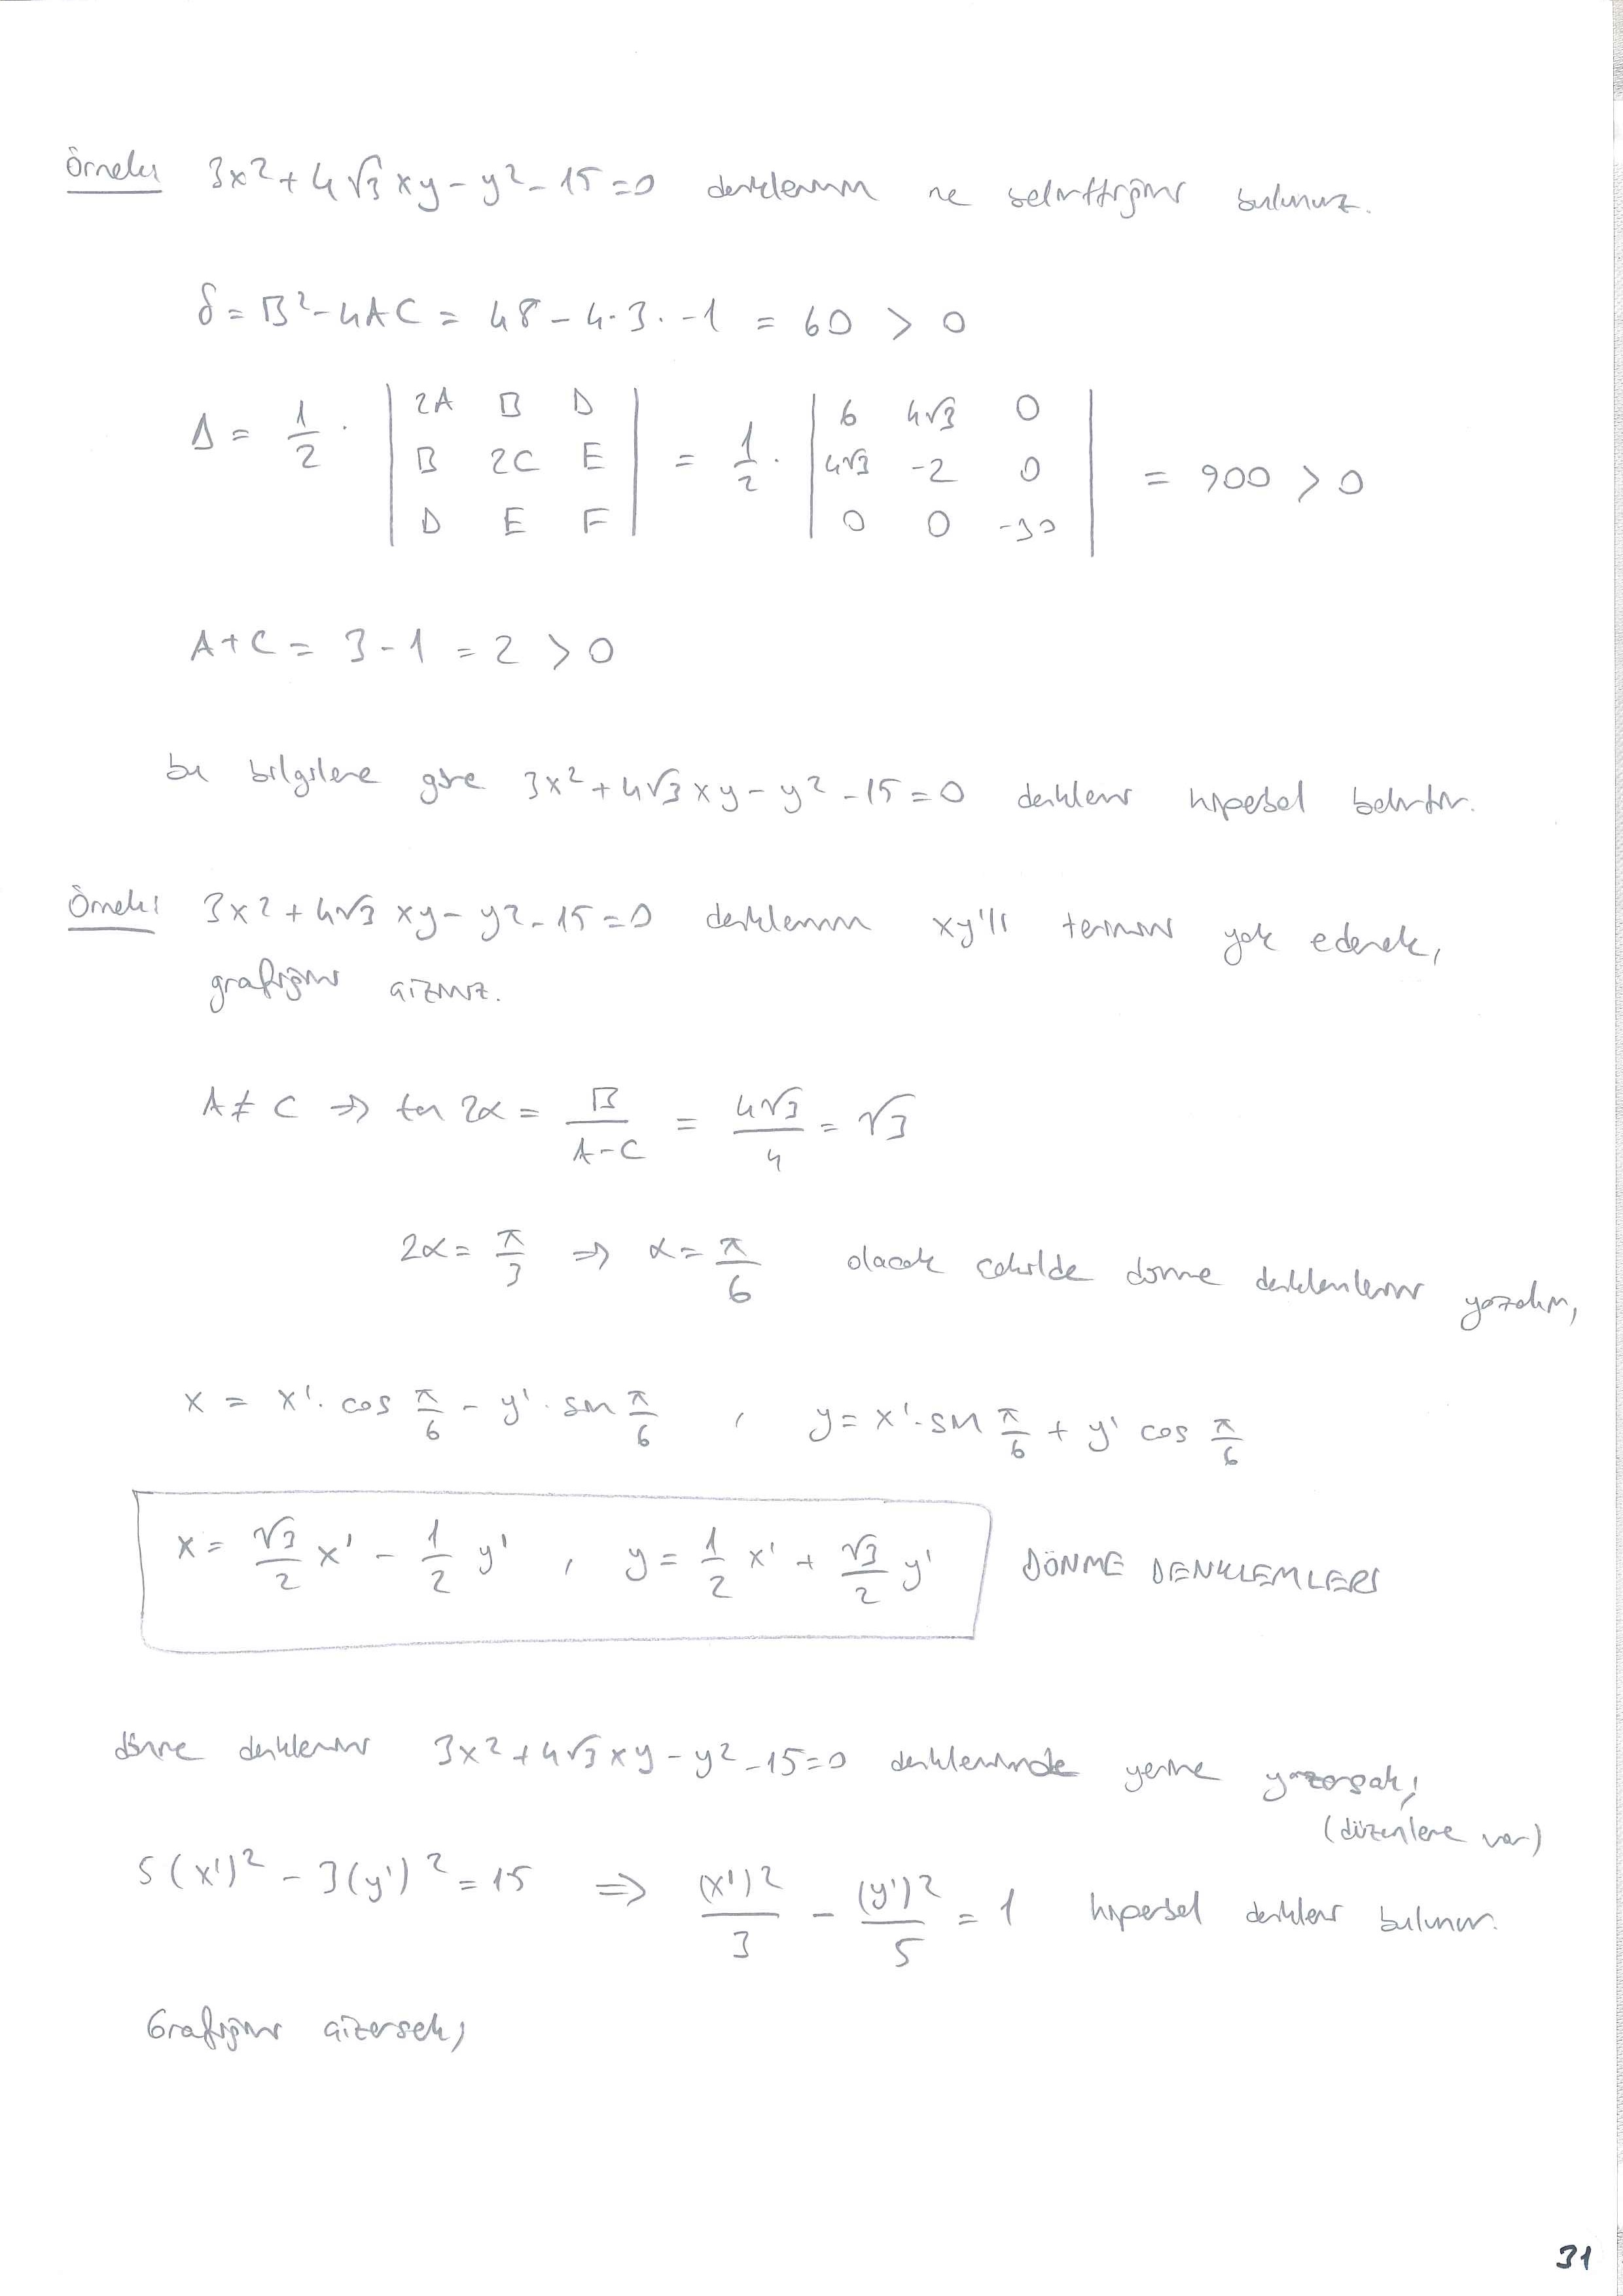 Örnek: 3x²+4√3xy-y²-15=0 denkleminin ne belirttiğini bulunuz.
δ=B²-4AC = 48-4.3.-1 = 60 > 0
Δ = 1/2 . |2A B D; B 2C E; D E F| = 1/2 . |6 4√3 0; 4√3 -2 0; 0 0 -30| = 900 > 0
A+C = 3-1 = 2 > 0
bu bilgilere göre 3x²+4√3xy-y²-15=0 denklemi hiperbol belirtir.
Örnek: 3x²+4√3xy-y²-15=0 denkleminin xy'li terimini yok ederek,
grafiğini çiziniz.
A≠C ⇒ tan 2α = B/(A-C) = 4√3/4 = √3
2α = π/3 ⇒ α = π/6 olacak şekilde dönme denklemlerini yazalım,
x = x'.cos π/6 - y'.sin π/6 , y = x'.sin π/6 + y' cos π/6
x = √3/2 x' - 1/2 y' , y = 1/2 x' + √3/2 y' DÖNME DENKLEMLERİ
dönme denklemini 3x²+4√3xy-y²-15=0 denkleminde yerine yazarsak;
(düzenleme var)
5(x')²-3(y')²=15 ⇒ (x')²/3 - (y')²/5 = 1 hiperbol denklemi bulunur.
Grafiğini çizersek;
31